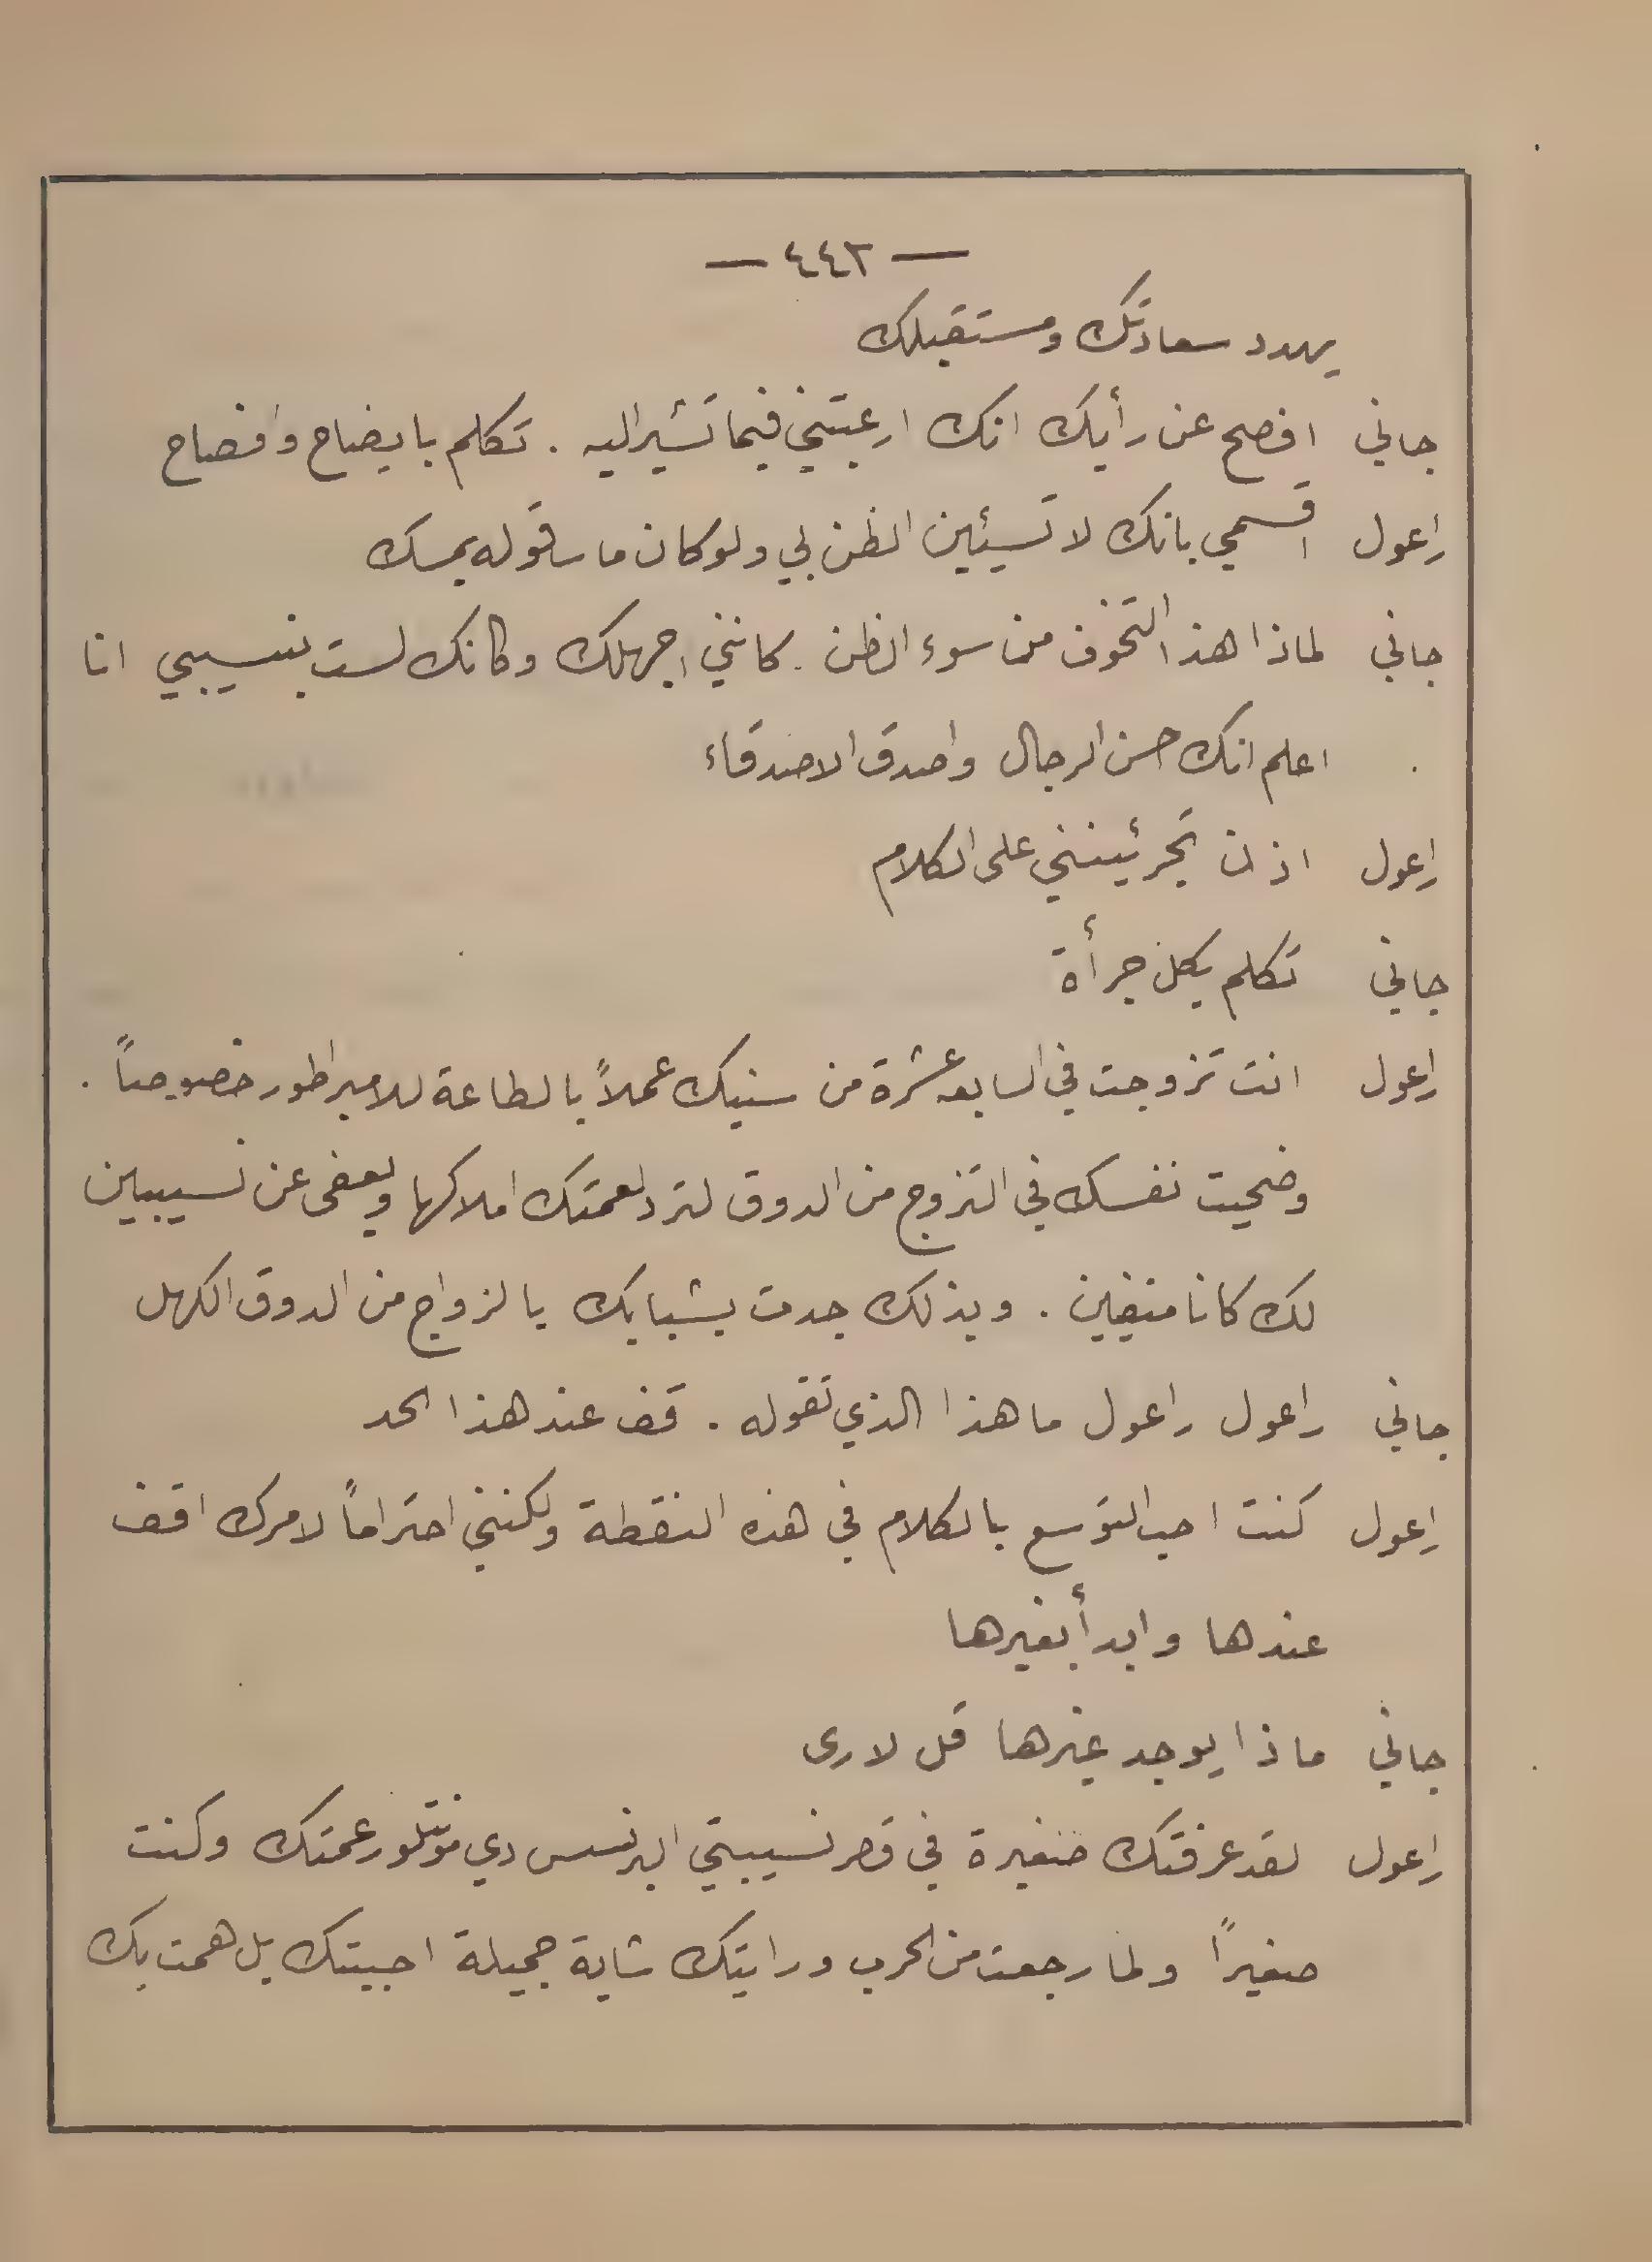 — ٤٤٢ —
يهدد سعادتك ومستقبلك
جاني افصح عن رأيك انك ارعبتني فيما تشير اليه . تكلم بايضاح وافصاح
راعول اقسمي بانك لا تسيئين الظن بي ولو كان ما ساقوله يمسك
جاني لماذا هذا التخوف من سوء الظن . كانني اجهلك وكانك لست بنسيبي انا
اعلم انك احسن الرجال واصدق الاصدقاء
راعول اذن تجرئينني على الكلام
جاني تكلم بكل جرأة
راعول انت تزوجت في السابعه عشرة من سنيك عملاً بالطاعة للامبراطور خصوصاً .
وضحيت نفسك في التزوج من الدوق لترد لعمتك املاكها ويعفى عن نسيبين
لك كانا منفيين . وبذلك جدت بشبابك بالزواج من الدوق الكهل
جاني راعول راعول ما هذا الذي تقوله . قف عند هذا الحد
راعول كنت احب التوسع بالكلام في هذه النقطة ولكنني احتراماً لامرك اقف
عندها وابدأ بغيرها
جاني ماذا يوجد غيرها قل لارى
راعول لقد عرفتك صغيرة في قصر نسيبتي البرنسس دي مونتلور عمتك وكنت
صغيراً ولما رجعت من الحرب ورايتك شابة جميلة احببتك بل همت بك